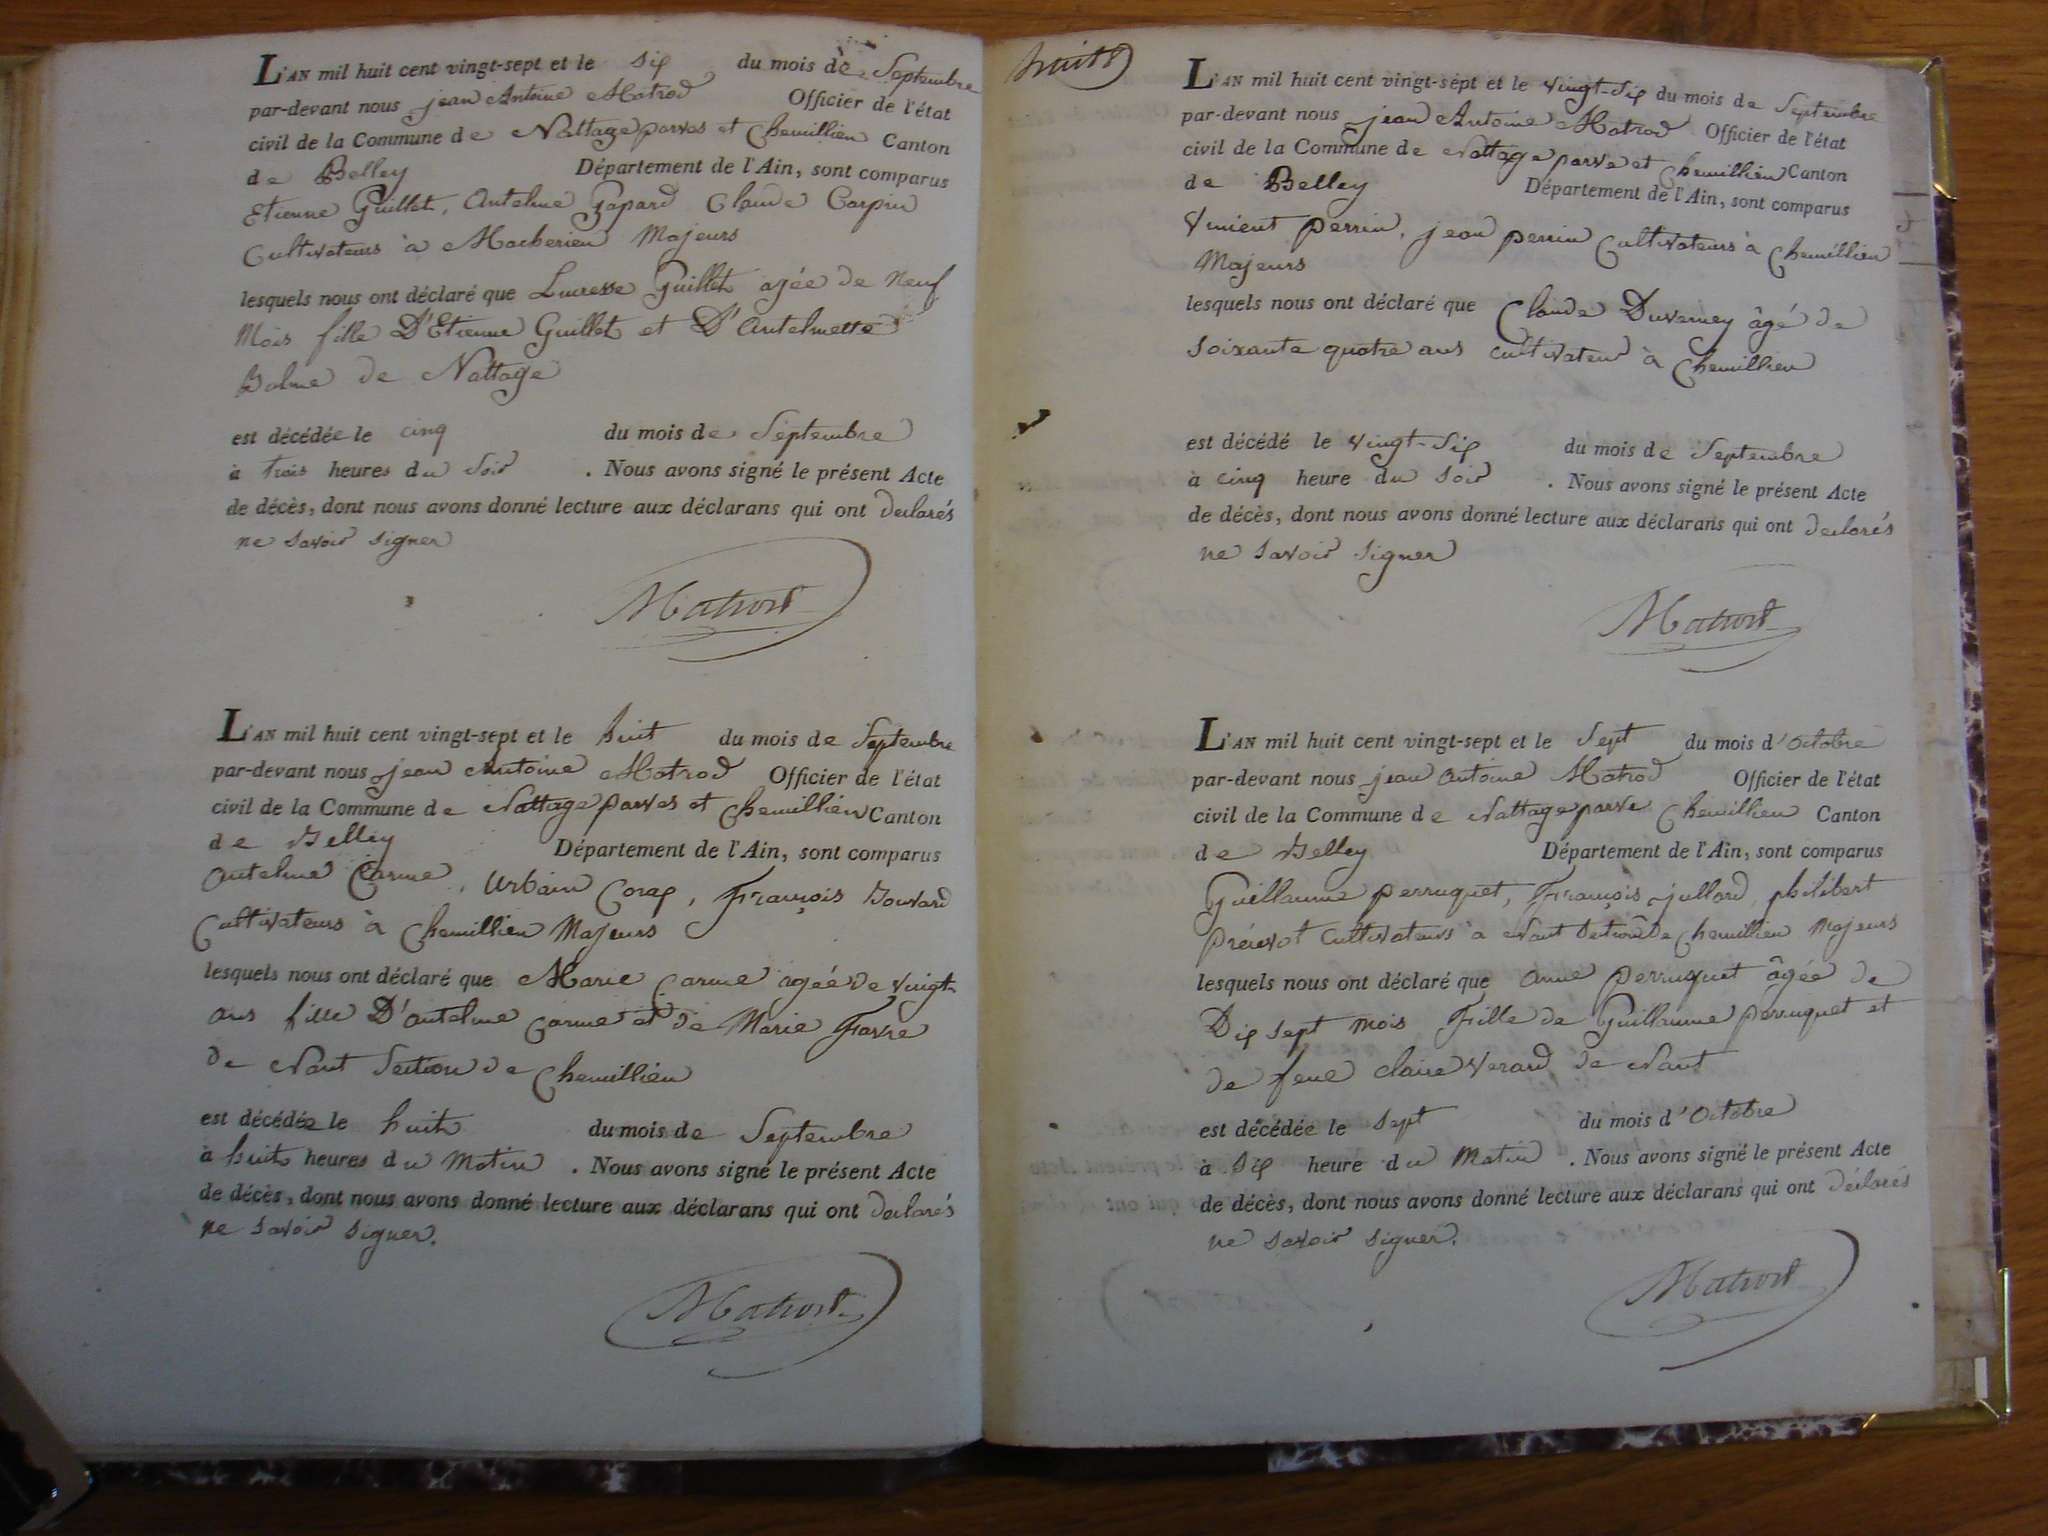 L'AN mil huit cent vingt-sept et le six du mois de Septembre
par-devant nous jean Antoine Matrod Officier de l'état
civil de la Commune de Nattage parves et Chemillieu Canton
de Belley Département de l'Ain, sont comparus
Etienne Guillet, Antelme Gapard Claude Carpin
Cultivateurs à Majeurs
lesquels nous ont déclaré que Lucresse Guillet agée de Neuf
Mois fille D'Etienne Guillet et D'antelmette
Balme de Nattage
est décédée le cinq du mois de Septembre
à trois heures du Soir . Nous avons signé le présent Acte
de décès, dont nous avons donné lecture aux déclarans qui ont declarés
ne savoir signer
Matrod
L'AN mil huit cent vingt-sept et le huit du mois de Septembre
par-devant nous jean Antoine Matrod Officier de l'état
civil de la Commune de Nattage parves et Chemillieu Canton
de Belley Département de l'Ain, sont comparus
antelme Carme, Urbain Corax, François Bouvard
Cultivateurs à Chemillieu Majeurs
lesquels nous ont déclaré que Marie Carme agée de vingt-
ans fille D'antelme Carme et de Marie Favre
de Nant Section de Chemillieu
est décédée le huit du mois de Septembre
à huit heures du Matin . Nous avons signé le présent Acte
de décès, dont nous avons donné lecture aux déclarans qui ont declarés
ne savoir signer.
Matrod
huit
L'AN mil huit cent vingt-sept et le vingt-six du mois de Septembre
par-devant nous jean Antoine Matrod Officier de l'état
civil de la Commune de Nattage parve et Chemillieu Canton
de Belley Département de l'Ain, sont comparus
Vinient perrin, jean perrin Cultivateurs à Chemillieu
Majeurs
lesquels nous ont déclaré que Claude Duverney âgé de
soixante quatre ans cultivateur à Chemillieu
est décédé le vingt-six du mois de Septembre
à cinq heure du soir . Nous avons signé le présent Acte
de décès, dont nous avons donné lecture aux déclarans qui ont declarés
ne savoir signer
Matrod
L'AN mil huit cent vingt-sept et le Sept du mois d'octobre
par-devant nous jean antoine Matrod Officier de l'état
civil de la Commune de Nattage parve Chemillieu Canton
de Belley Département de l'Ain, sont comparus
Guillaume perruquet, François jullard, philibert
prévot Cultivateurs à Nant Section de Chemillieu Majeurs
lesquels nous ont déclaré que anne perruquet âgée de
Dix sept mois Fille de Guillaume perruquet et
de feue claire verard de Nant
est décédée le sept du mois d'octobre
à Six heure du Matin . Nous avons signé le présent Acte
de décès, dont nous avons donné lecture aux déclarans qui ont déclarés
ne savoir signer.
Matrod